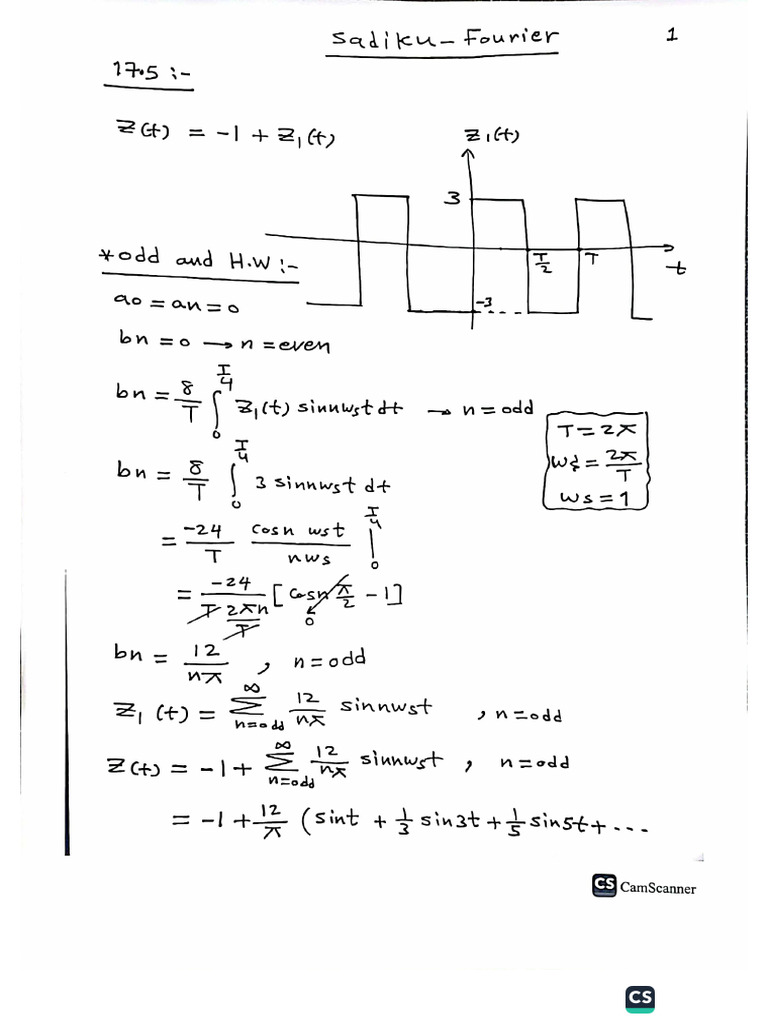 Sadiku - Fourier
1
17.5 :-
Z(t) = -1 + Z₁(t)
Z₁(t)
3
T/2
T
t
-3
*odd and H.W :-
a0 = an = 0
bn = 0 → n = even
bn = 8/T ∫₀^(T/4) Z₁(t) sin nwst dt → n = odd
T = 2π
ws = 2π/T
ws = 1
bn = 8/T ∫₀^(T/4) 3 sin nwst dt
= -24/T cosn wst / nws |₀^(T/4)
= -24 / (T 2πn/T) [cosn π/2 - 1]
0
bn = 12/nπ , n = odd
Z₁(t) = ∑_(n=odd)^∞ 12/nπ sin nwst , n = odd
Z(t) = -1 + ∑_(n=odd)^∞ 12/nπ sin nwst , n = odd
= -1 + 12/π (sint + 1/3 sin3t + 1/5 sin5t + ...
CS CamScanner
CS